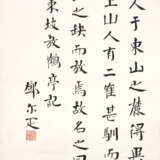 人于東山之麓得異
上山人有二隺甚馴而
之缺而放焉故名之曰
東坡放鶴亭記
鄧尔疋